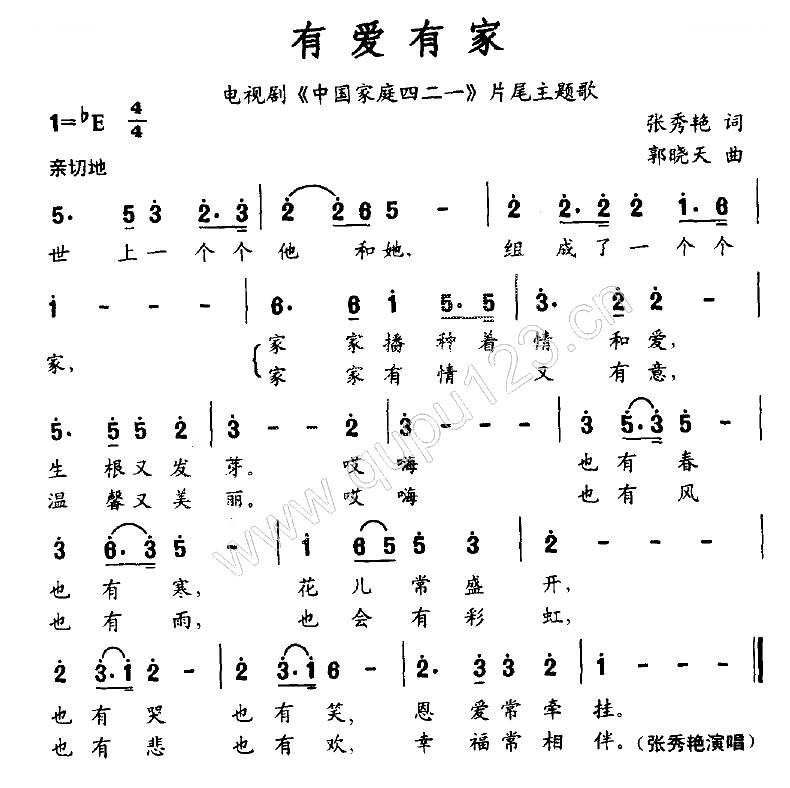 有爱有家
电视剧《中国家庭四二一》片尾主题歌
1=♭E 4/4
张秀艳 词
郭晓天 曲
亲切地
5· 5 3 2·3 | 2 2 6 5 - | 2 2·2 2 1·6 |
世 上一 个个 他 和她, 组 成了一 个个
1 - - - | 6· 6 1 5·5 | 3· 2 2 - |
家, 家 家播 种着 情 和爱,
家 家有 情 又 有意,
5· 5 5 2 | 3 - - 2 | 3 - - - | 3 5·3 5 - |
生 根又发 芽。 哎 嗨 也 有 春
温 馨又美 丽。 哎 嗨 也 有 风
3 6·3 5 - | 1 6 5 5 3 | 2 - - - |
也 有 寒, 花 儿 常 盛 开,
也 有 雨, 也 会 有 彩 虹,
2 3·1 2 - | 2 3·1 6 - | 2· 3 2 5 | 1 - - - ‖
也 有 哭 也 有 笑, 恩 爱常牵 挂。
也 有 悲 也 有 欢, 幸 福常相 伴。(张秀艳演唱)
www.qupu123.cn